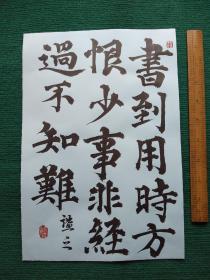 書到用時方
恨少事非經
過不知難
謹之